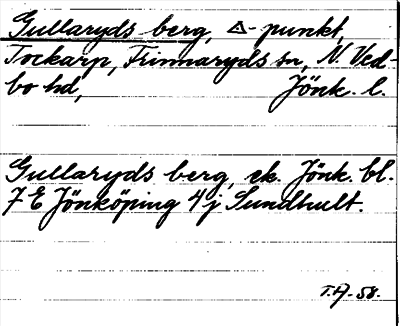 Gullaryds berg, △-punkt,
Tockarp, Frinnaryds sn, N. Ved-
bo hd, Jönk. l.
Gullaryds berg, ek. Jönk. bl.
7 E Jönköping 4 j Sundhult.
T.H. 58.